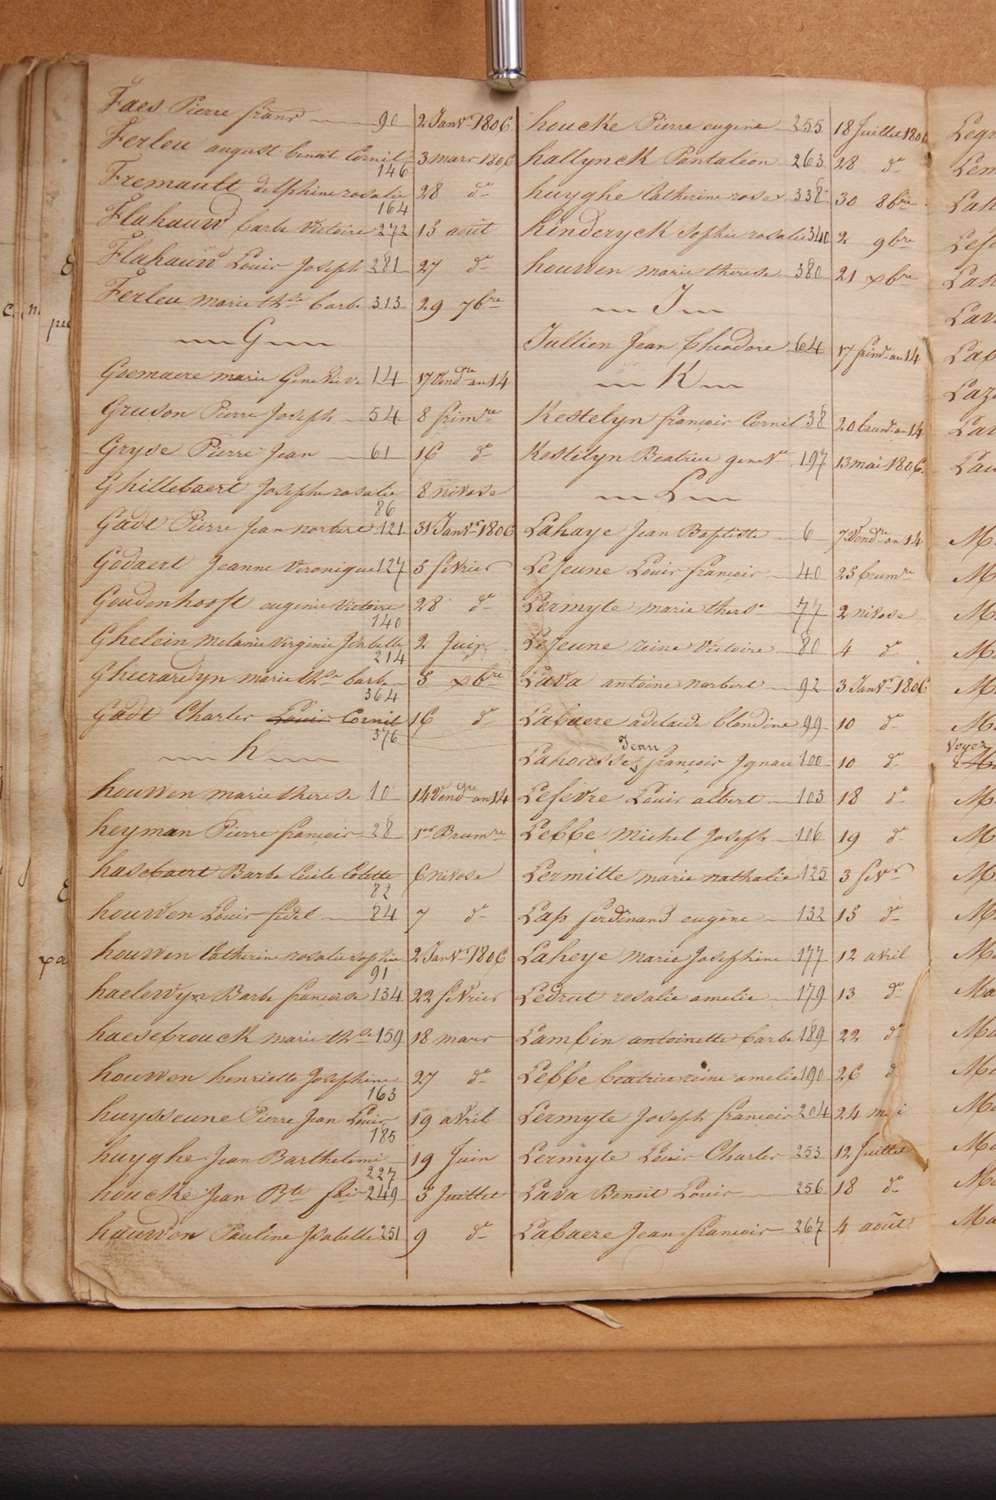 Faes Pierre frans 90 2 Janvr 1806
Ferleu august benoit Cornil 146 3 mars 1806
Fremault delphine rosalie 164 28 do
Flahauw barbe Victoire 272 13 août
Flahauw Louis Joseph 281 27 do
Ferleu marie thse barbe 313 29 7bre
G
Goemaere marie Genevieve 14 17 Vendre an 14
Gruson Pierre Joseph 54 8 frimre
Gryse Pierre Jean 61 16 do
Ghillebaert Josephe rosalie 86 8 nivose
Gadt Pierre Jean norbert 121 31 Janvr 1806
Godaert Jeanne Veronique 127 5 fevrier
Goudenhooft eugenie victoire 140 28 do
Ghelein melanie virginie Isabelle 214 2 Juin
Gheerardyn marie thse barbe 364 5 xbre
Gadt Charles Louis Cornil 376 16 do
h
houwen marie therese 10 14 Vendre an 14
heyman Pierre françois 28 1er Brumre
hasebaert Barbe Cecile Colette 82 6 nivose
houwen Louis fidel 84 7 do
houwen Catherine rosalie sophie 91 2 Janvr 1806
haelewyn Barbe françoise 134 22 fevrier
haesebrouck marie thse 159 18 mars
houwen henriette Josephine 163 27 do
huyseune Pierre Jean Louis 185 19 avril
huyghe Jean Barthelemi 227 19 Juin
houcke Jean Bte 249 5 Juillet
houwen Pauline Isabelle 251 9 do
houcke Pierre eugene 255 18 Juillet 1806
hallynck Pantaléon 263 28 do
huyghe Catherine rose 338 30 8bre
hinderyck Sophie rosalie 340 2 9bre
houwen marie therese 380 21 xbre
J
Jullien Jean Theodore 64 17 frimre an 14
K
Kestelyn françois Cornil 38 20 brumre an 14
Kestelyn Beatrice genevre 197 13 mai 1806
L
Lahaye Jean Baptiste 6 7 Vendre an 14
LeJeune Louis francois 40 25 brumre
Lermyte marie therse 77 2 nivose
LeJeune reine Victoire 80 4 do
Lava antoine norbert 92 3 Janvr 1806
Labaere adelaide blandine 99 10 do
Jean
Lahousse françois Ignace 100 10 do
Lefevre Louis albert 103 18 do
Lebbe Michel Joseph 106 19 do
Lermitte marie nathalie 125 3 fevr
Lass ferdinand eugène 132 15 do
Laheye marie Josephine 177 12 avril
Ledrut rosalie amelie 179 13 do
Lambin antoinette barbe 189 22 do
Lebbe beatrice reine amelie 190 26 d
Lermyte Joseph francois 204 24 mai
Lermyte Louis Charles 253 12 Juillet
Lava Benoit Louis 256 18 do
Labaere Jean francois 267 4 août